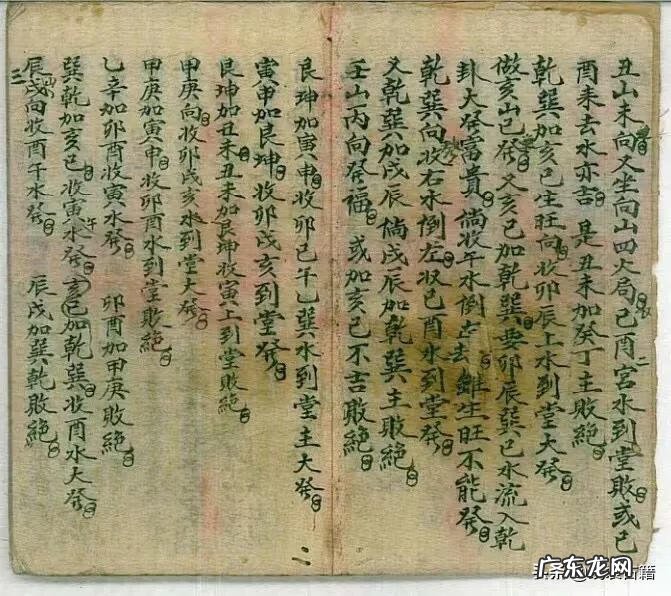 丑山未向又坐向山四火局巳酉宮水到堂敗或巳
酉未去水亦吉 是丑未加癸丁主敗絕
乾巽加亥巳生旺向收卯辰上水到堂大發
做亥山巳發又亥巳加乾巽要卯辰巽巳水流入乾
卦大發富貴倘收午水倒右去雖生旺不能發
乾巽向收右水倒左收巳酉水到堂發
又乾巽加戌辰倘戌辰加乾巽主敗絕
壬山丙向發福 或加亥巳不吉敗絕
艮坤加寅申收卯巳午乙巽水到堂主大發
寅申加艮坤收卯戌亥到堂發
艮坤加丑未丑未加艮坤收寅上到堂敗絕
甲庚向收卯戌亥水到堂大發
甲庚加寅申收卯酉水到堂敗絕
乙辛加卯酉收寅水發 卯酉加甲庚敗絕
巽乾加亥巳收寅水發亥巳加乾巽收酉水大發
午
辰戌向收酉午水發 辰戌加巽乾敗絕
二
三
广东龙网